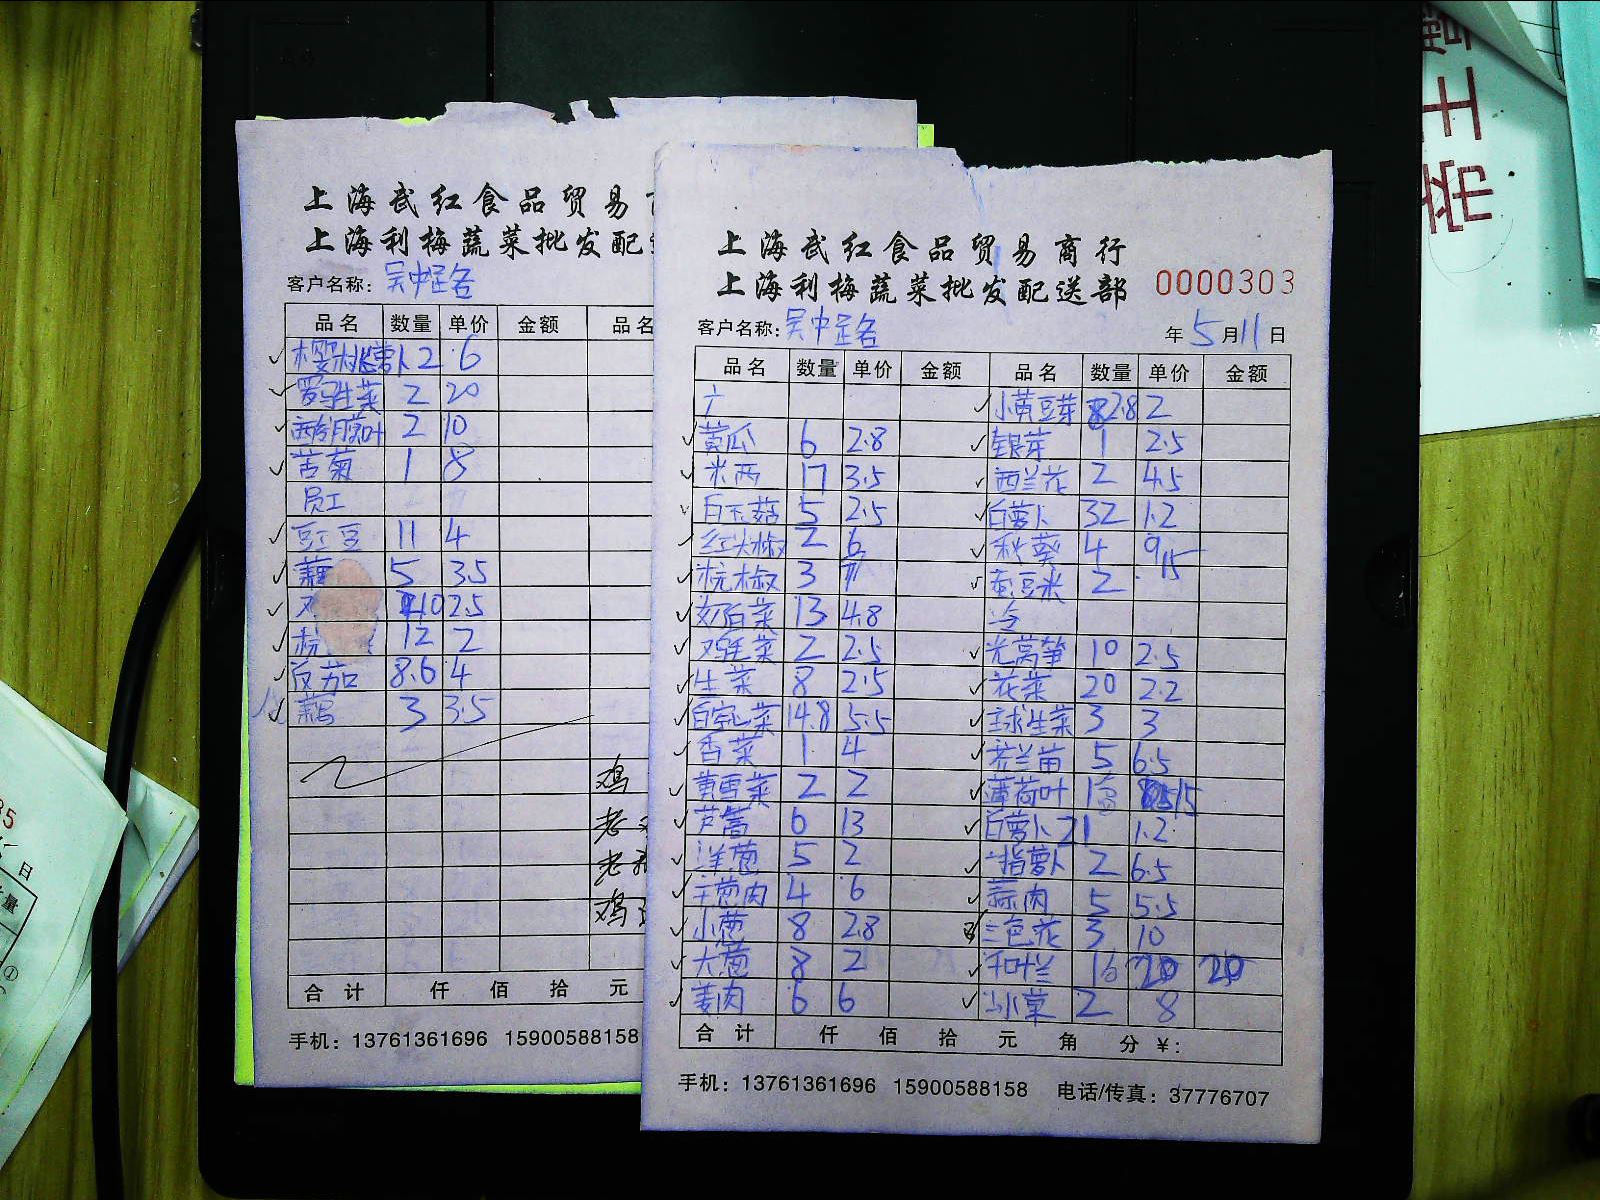 上海武红食品贸易
上海利梅蔬菜批发配
客户名称：吴中路名
品名 数量 单价 金额 品名
樱桃萝卜 2 6
罗马生菜 2 20
2 10
苦菊 1 8
员工
豇豆 11 4
5 3.5
10 2.5
12 2
8.6 4
3 3.5
鸡
老
老
鸡
合计 仟 佰 拾 元
手机：13761361696 15900588158
上海武红食品贸易商行
上海利梅蔬菜批发配送部 0000303
客户名称： 年 5月11日
品名 数量 单价 金额 品名 数量 单价 金额
小黄豆芽 2.8 2
黄瓜 6 2.8 银芽 1 2.5
米西 17 3.5 西兰花 2 4.5
白玉菇 5 2.5 白萝卜 32 1.2
红尖椒 2 6 秋葵 4 9
杭椒 3 蚕豆米 2 15
奶白菜 13 4.8 冷
鸡毛菜 2 2.5 光莴笋 10 2.5
生菜 8 2.5 花菜 20 2.2
14.8 5.5 球生菜 3 3
香菜 1 4 芥兰苗 5 6.5
黄雪菜 2 2 薄荷叶 1 15
芦蒿 6 13 白萝卜 21 1.2
洋葱 5 2 指萝卜 2 6.5
干葱肉 4 6 蒜肉 5 5.5
小葱 8 2.8 三色花 3 10
大葱 8 2 20 20
姜肉 6 6 冰菜 2 8
合计 仟 佰 拾 元 角 分 ¥：
手机：13761361696 15900588158 电话/传真：37776707
帝王
35
日
量